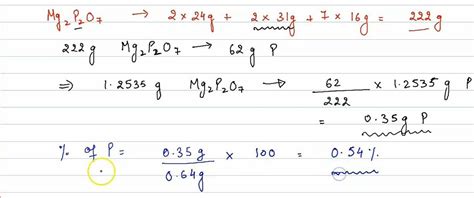 Mg₂P₂O₇ → 2×24g + 2×31g + 7×16g = 222g
222 g Mg₂P₂O₇ → 62 g P
⇒ 1.2535g Mg₂P₂O₇ → 62/222 × 1.2535 g P
= 0.35g P
% of P = 0.35g/0.64g × 100 = 0.54%